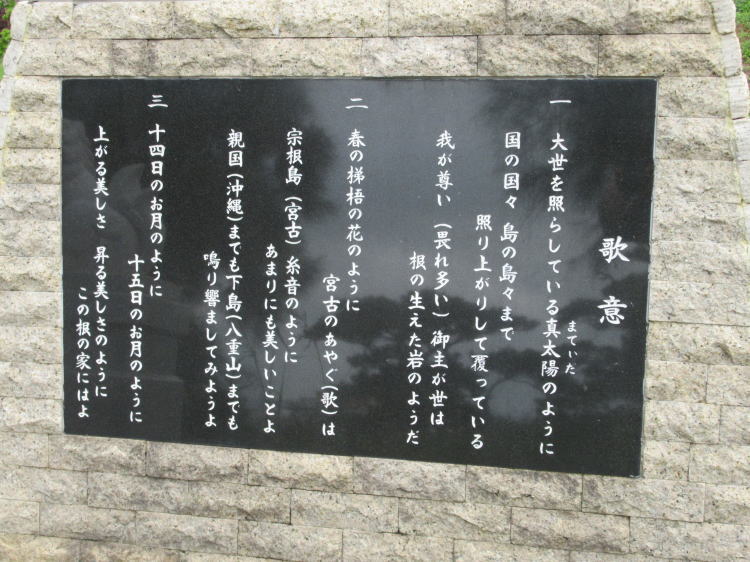 歌意
一 大世を照らしている真太陽のように
まてぃだ
国の国々 島の島々まで
照り上がりして覆っている
我が尊い (畏れ多い) 御主が世は
根の生えた岩のようだ
二 春の梯梧の花のように
宮古のあやぐ(歌)は
宗根島 (宮古) 糸音のように
あまりにも美しいことよ
親国(沖縄)までも下島(八重山)までも
鳴り響ましてみようよ
三 十四日のお月のように
十五日のお月のように
上がる美しさ 昇る美しさのように
この根の家にはよ